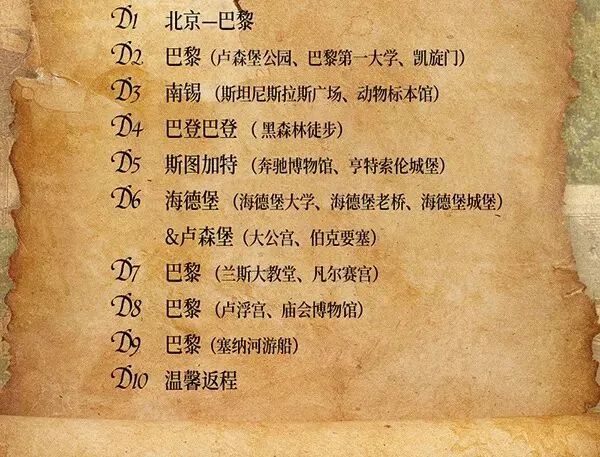 D1 北京—巴黎
D2 巴黎（卢森堡公园、巴黎第一大学、凯旋门）
D3 南锡（斯坦尼斯拉斯广场、动物标本馆）
D4 巴登巴登（黑森林徒步）
D5 斯图加特（奔驰博物馆、亨特索伦城堡）
D6 海德堡（海德堡大学、海德堡老桥、海德堡城堡）
&卢森堡（大公宫、伯克要塞）
D7 巴黎（兰斯大教堂、凡尔赛宫）
D8 巴黎（卢浮宫、庙会博物馆）
D9 巴黎（塞纳河游船）
D10 温馨返程